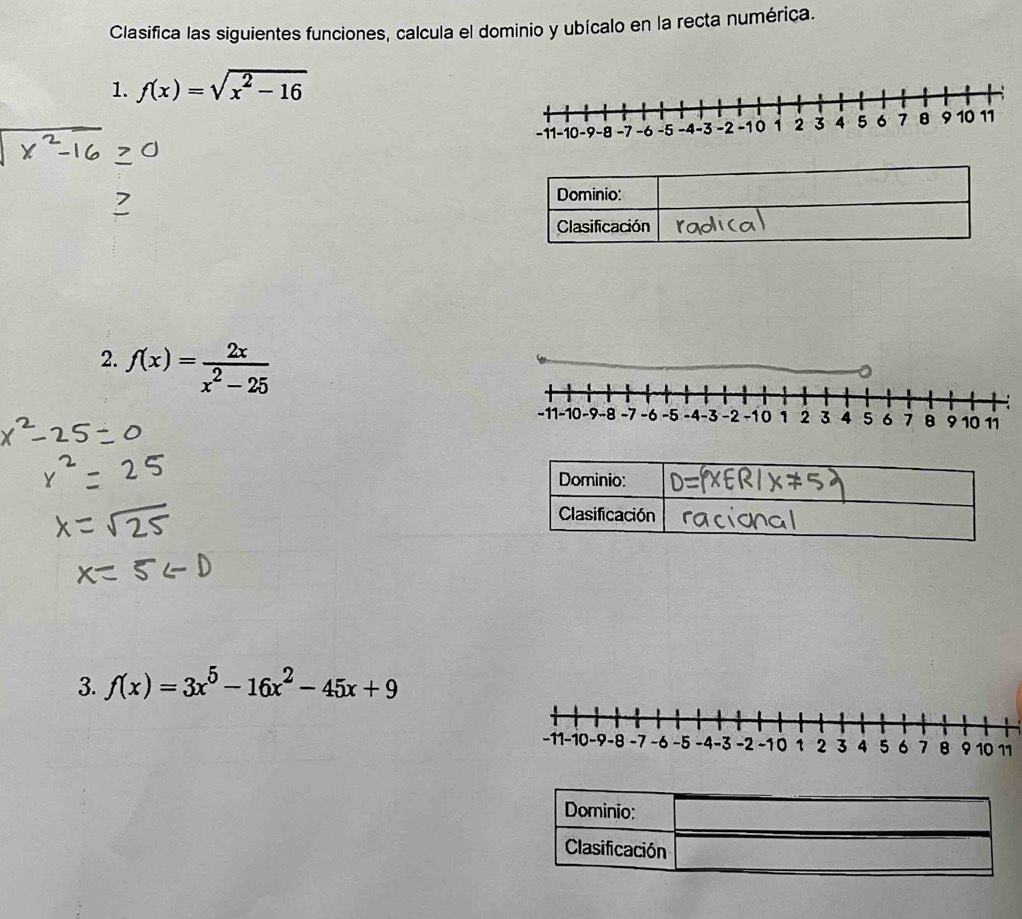 Clasifica las siguientes funciones, calcula el dominio y ubícalo en la recta numérica.
1. f(x) = √(x² - 16)
-11-10-9-8 -7 -6 -5 -4-3 -2 -1 0 1 2 3 4 5 6 7 8 9 10 11
√(x²-16) ≥ 0
≥
Dominio:
Clasificación radical
2. f(x) = 2x/(x² - 25)
-11-10-9-8 -7 -6 -5 -4-3 -2 -1 0 1 2 3 4 5 6 7 8 9 10 11
x²-25=0
x² = 25
x = √25
x = 5 ← D
Dominio: D={x∈R|x≠5}
Clasificación racional
3. f(x) = 3x⁵ - 16x² - 45x + 9
-11-10-9-8 -7 -6 -5 -4-3 -2 -1 0 1 2 3 4 5 6 7 8 9 10 11
Dominio:
Clasificación